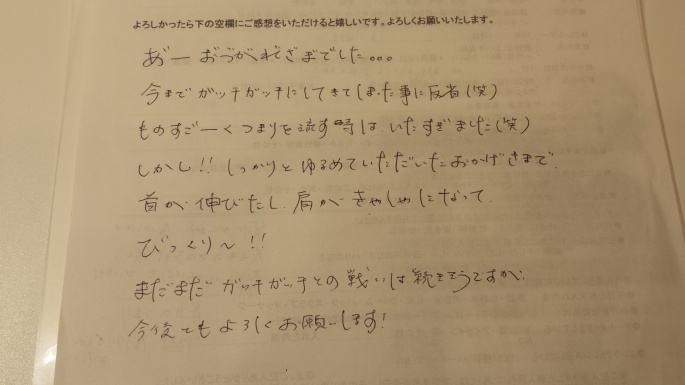 よろしかったら下の空欄にご感想をいただけると嬉しいです。よろしくお願いいたします。
あ゛ー おづがれざまでした...
今まで ガッチガッチにしてきてしまった事に反省(笑)
ものすごーくつまりを流す時は いたすぎました(笑)
しかし!! しっかりと ゆるめていただいたおかげさまで、
首が 伸びたし、肩が きゃしゃになって
びっくり〜!!
まだまだ ガッチガッチとの戦いは続きそうですが、
今後ともよろしくお願いします!